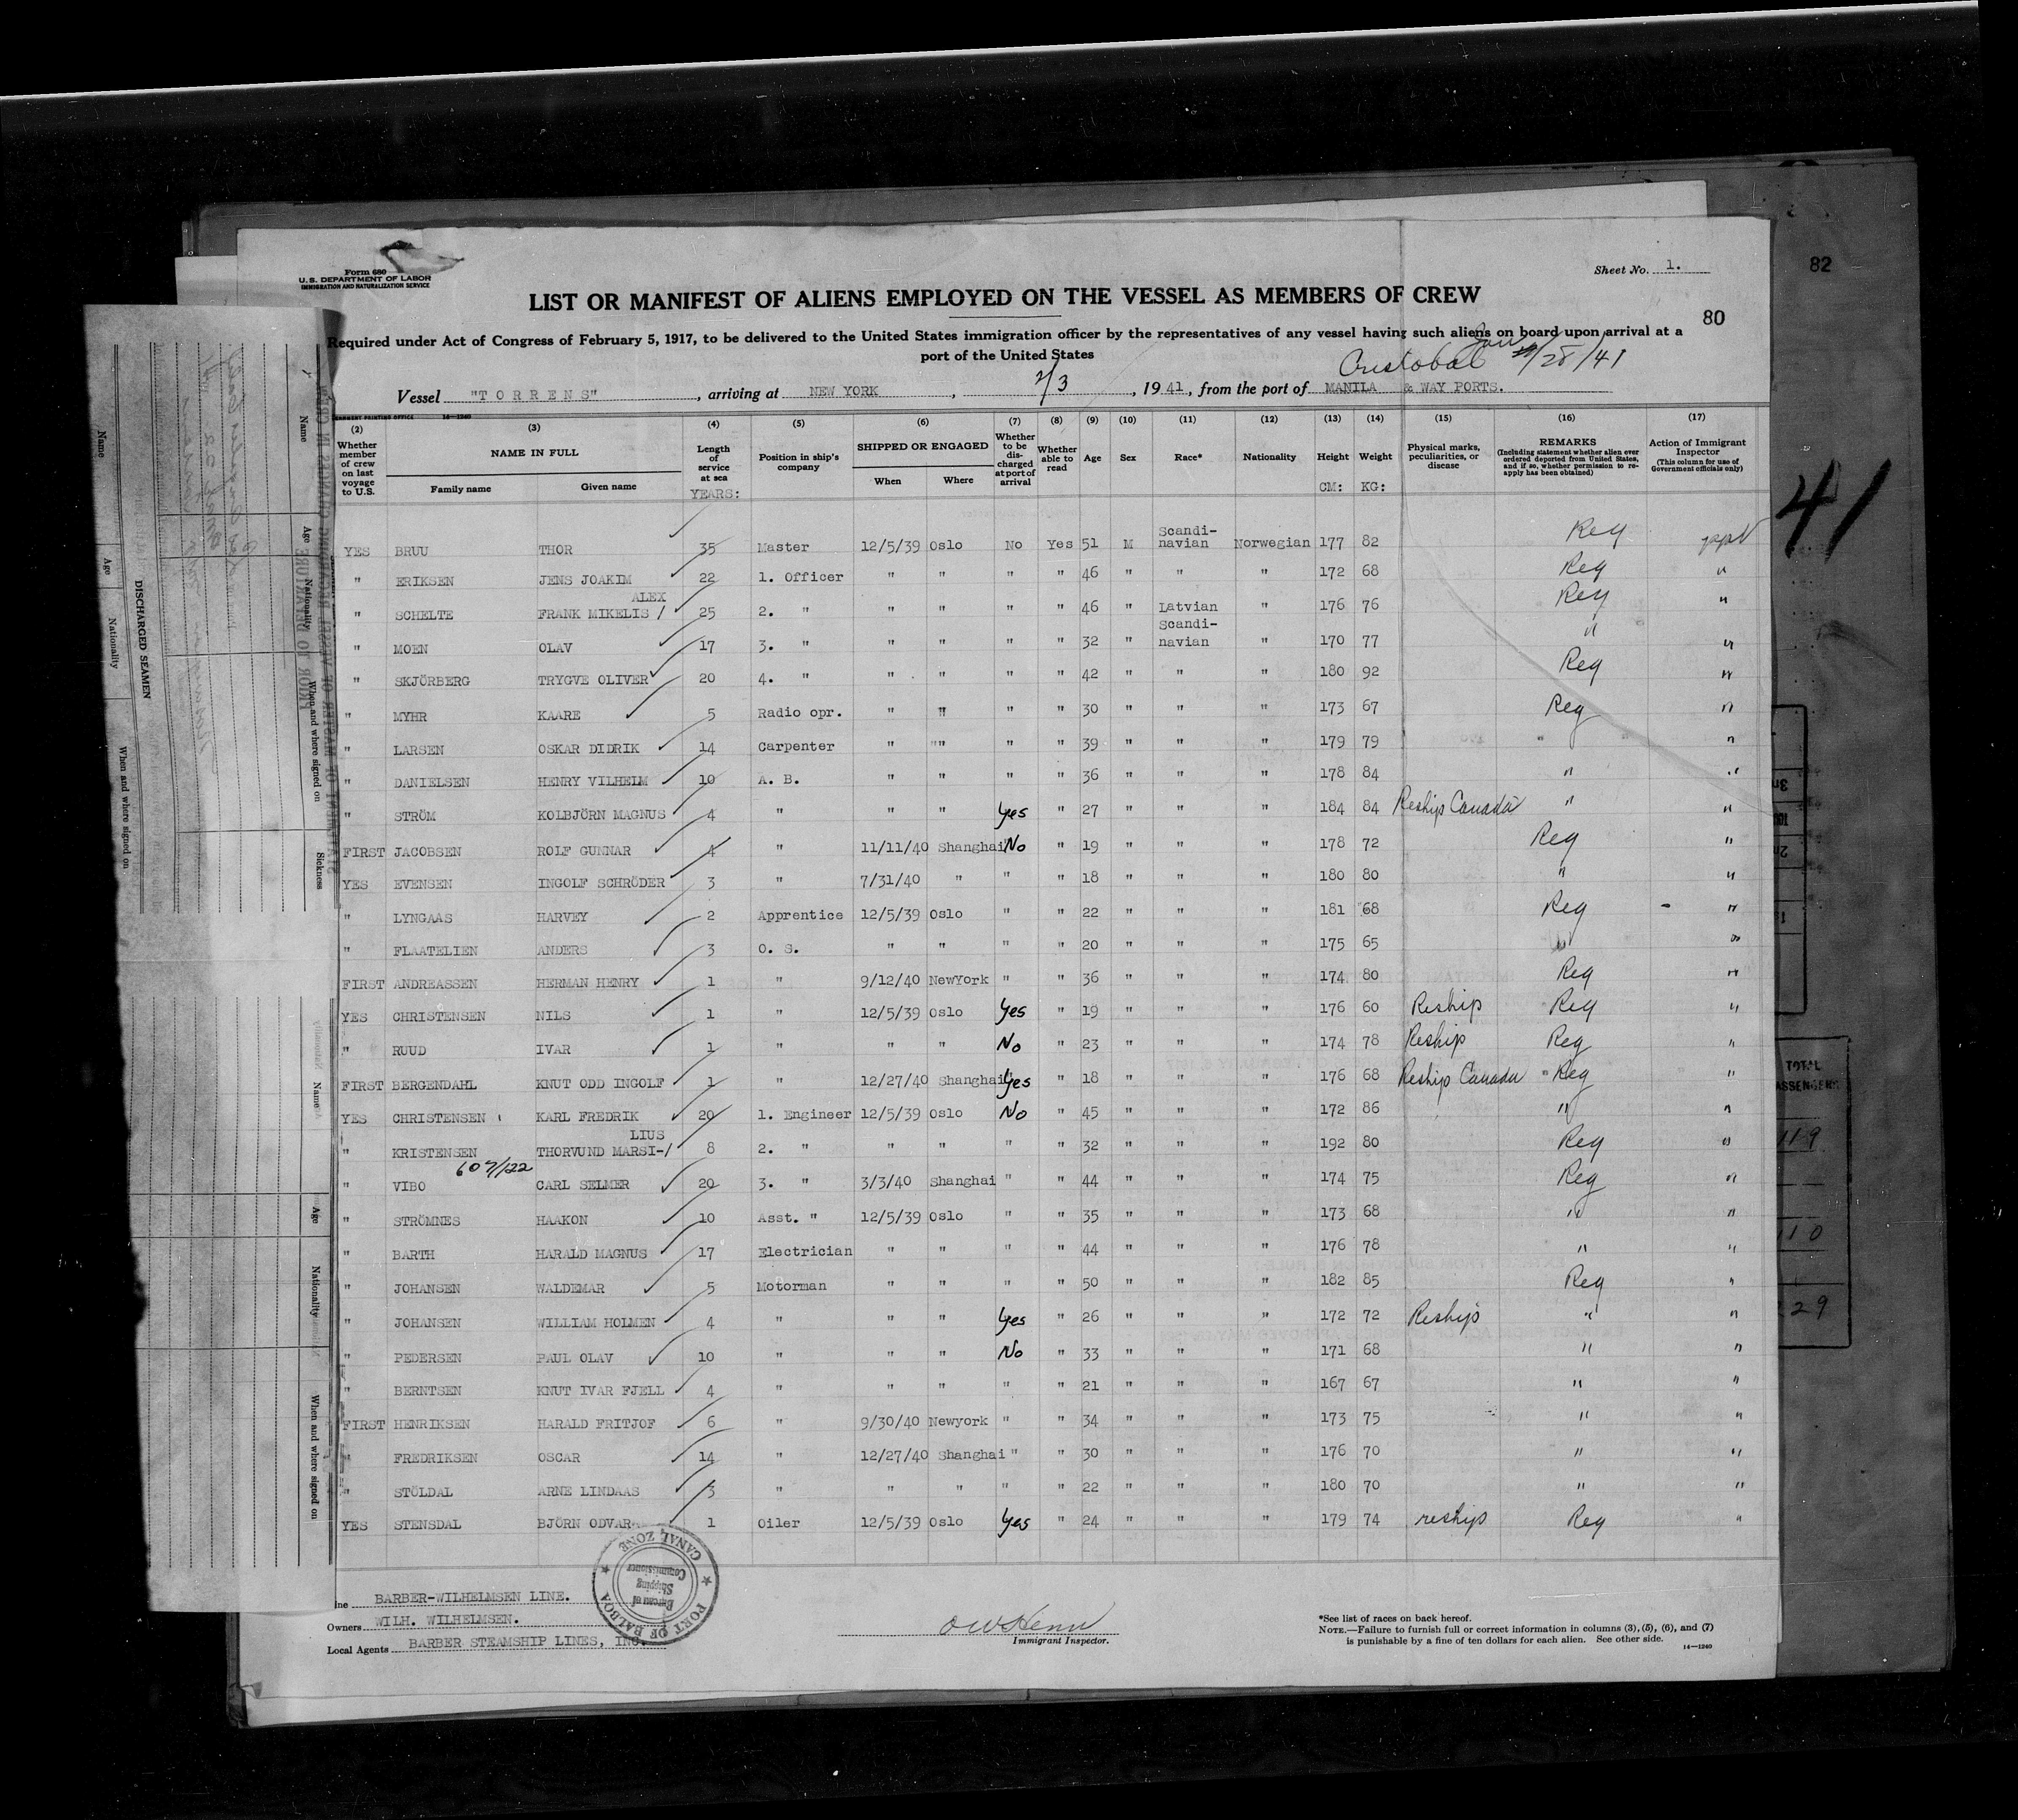 Form 680
U. S. DEPARTMENT OF LABOR
IMMIGRATION AND NATURALIZATION SERVICE
Sheet No. 1.
82
LIST OR MANIFEST OF ALIENS EMPLOYED ON THE VESSEL AS MEMBERS OF CREW
80
Required under Act of Congress of February 5, 1917, to be delivered to the United States immigration officer by the representatives of any vessel having such aliens on board upon arrival at a
port of the United States
Cristobal Jan 28/41
Vessel "TORRENS", arriving at NEW YORK, 2/3, 1941, from the port of MANILA & WAY PORTS.
(2) (3) (4) (5) (6) (7) (8) (9) (10) (11) (12) (13) (14) (15) (16) (17)
Whether member of crew on last voyage to U.S.
NAME IN FULL Family name Given name
Length of service at sea YEARS:
Position in ship's company
SHIPPED OR ENGAGED When Where
Whether to be discharged at port of arrival
Whether able to read
Age
Sex
Race*
Nationality
Height CM:
Weight KG:
Physical marks, peculiarities, or disease
REMARKS (Including statement whether alien ever ordered deported from United States, and if so, whether permission to reapply has been obtained)
Action of Immigrant Inspector (This column for use of Government officials only)
41
YES BRUU THOR 35 Master 12/5/39 Oslo No Yes 51 M Scandi-navian Norwegian 177 82 Reg
" ERIKSEN JENS JOAKIM 22 1. Officer " " " " 46 " " " 172 68 Reg "
" SCHELTE FRANK MIKELIS / ALEX 25 2. " " " " " 46 " Latvian " 176 76 Reg "
" MOEN OLAV 17 3. " " " " " 32 " Scandi-navian " 170 77 " "
" SKJÖRBERG TRYGVE OLIVER 20 4. " " " " " 42 " " " 180 92 Reg "
" MYHR KAARE 5 Radio opr. " " " " 30 " " " 173 67 Reg "
" LARSEN OSKAR DIDRIK 14 Carpenter " " " " 39 " " " 179 79 " "
" DANIELSEN HENRY VILHELM 10 A. B. " " " " 36 " " " 178 84 " "
" STRÖM KOLBJÖRN MAGNUS 4 " " " Yes " 27 " " " 184 84 Reship Canada " "
FIRST JACOBSEN ROLF GUNNAR 4 " 11/11/40 Shanghai No " 19 " " " 178 72 Reg "
YES EVENSEN INGOLF SCHRÖDER 3 " 7/31/40 " " " 18 " " " 180 80 " "
" LYNGAAS HARVEY 2 Apprentice 12/5/39 Oslo " " 22 " " " 181 68 Reg - "
" FLAATELIEN ANDERS 3 O. S. " " " " 20 " " " 175 65 " "
FIRST ANDREASSEN HERMAN HENRY 1 " 9/12/40 NewYork " " 36 " " " 174 80 Reg "
YES CHRISTENSEN NILS 1 " 12/5/39 Oslo Yes " 19 " " " 176 60 Reship Reg "
" RUUD IVAR 1 " " " No " 23 " " " 174 78 Reship Reg "
FIRST BERGENDAHL KNUT ODD INGOLF 1 " 12/27/40 Shanghai Yes " 18 " " " 176 68 Reship Canada " Reg "
YES CHRISTENSEN KARL FREDRIK 20 1. Engineer 12/5/39 Oslo No " 45 " " " 172 86 " "
" KRISTENSEN THORVUND MARSI-/LIUS 8 2. " " " " " 32 " " " 192 80 Reg "
607/122
" VIBO CARL SELMER 20 3. " 3/3/40 Shanghai " " 44 " " " 174 75 Reg "
" STRÖMNES HAAKON 10 Asst. " 12/5/39 Oslo " " 35 " " " 173 68 " "
" BARTH HARALD MAGNUS 17 Electrician " " " " 44 " " " 176 78 " "
" JOHANSEN WALDEMAR 5 Motorman " " " " 50 " " " 182 85 Reg "
" JOHANSEN WILLIAM HOLMEN 4 " " " Yes " 26 " " " 172 72 Reship " "
" PEDERSEN PAUL OLAV 10 " " " No " 33 " " " 171 68 " "
" BERNTSEN KNUT IVAR FJELL 4 " " " " " 21 " " " 167 67 " "
FIRST HENRIKSEN HARALD FRITJOF 6 " 9/30/40 Newyork " " 34 " " " 173 75 " "
" FREDRIKSEN OSCAR 14 " 12/27/40 Shanghai " " 30 " " " 176 70 " "
" STÖLDAL ARNE LINDAAS 3 " " " " " 22 " " " 180 70 " "
YES STENSDAL BJÖRN ODVAR 1 Oiler 12/5/39 Oslo Yes " 24 " " " 179 74 reship Reg "
Line BARBER-WILHELMSEN LINE.
Owners WILH. WILHELMSEN.
Local Agents BARBER STEAMSHIP LINES, INC.
PORT OF BALBOA CANAL ZONE
Bureau of Shipping Commissioner
Immigrant Inspector.
*See list of races on back hereof.
NOTE.—Failure to furnish full or correct information in columns (3), (5), (6), and (7)
is punishable by a fine of ten dollars for each alien. See other side.
14—1240
DISCHARGED SEAMEN
Name
Age
Nationality
When and where signed on
Sickness
Name
Age
Nationality
When and where signed on
TOTAL
PASSENGERS
119
110
229